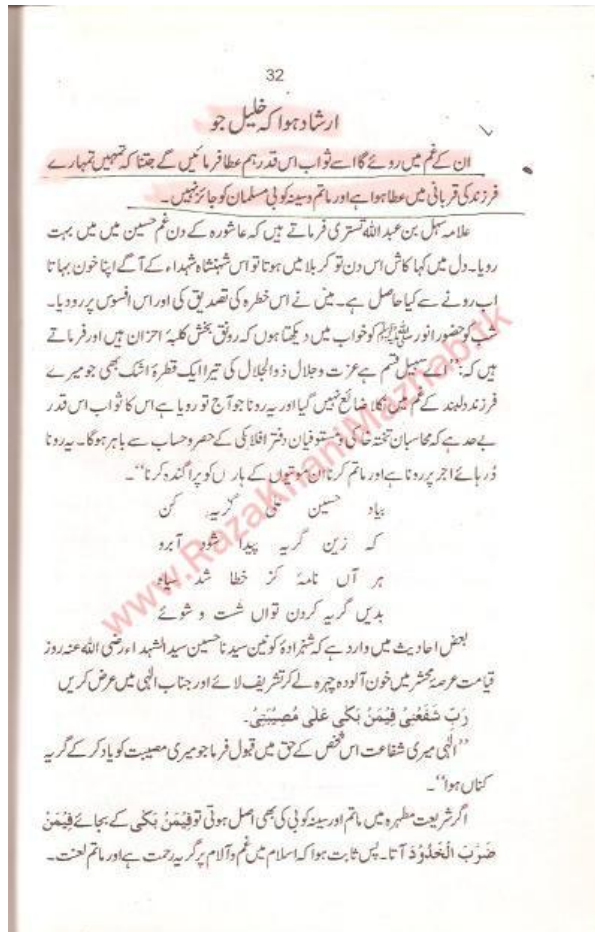 32
ارشاد ہوا کہ خلیل جو
ان کے غم میں روئے گا اسے ثواب اس قدر ہم عطا فرمائیں گے جتنا کہ تمہیں تمہارے
فرزند کی قربانی میں عطا ہوا ہے اور ماتم و سینہ کوبی مسلمان کو جائز نہیں۔
علامہ سہل بن عبداللہ تستری فرماتے ہیں کہ عاشورہ کے دن غم حسین میں میں بہت
رویا۔ دل میں کہا کاش اس دن تو کربلا میں ہوتا تو اس شہنشاہ شہداء کے آگے اپنا خون بہاتا
اب رونے سے کیا حاصل ہے۔ میں نے اس خطرہ کی تصدیق کی اور اس افسوس پر رو دیا۔
شب کو حضور انور ﷺ کو خواب میں دیکھتا ہوں کہ رونق بخش کلبۂ احزان ہیں اور فرماتے
ہیں کہ: ”اے سہیل قسم ہے عزت و جلال ذوالجلال کی تیرا ایک قطرۂ اشک بھی جو میرے
فرزند دلبند کے غم میں نکلا ضائع نہیں گیا اور یہ رونا جو آج تو رویا ہے اس کا ثواب اس قدر
بے حد ہے کہ محاسبان تختہ خاکی و مستوفیان دفتر افلاکی کے حصر و حساب سے باہر ہوگا۔ یہ رونا
دُرہائے اجر پر رونا ہے اور ماتم کرنا ان موتیوں کے ہار کو پراگندہ کرنا“۔
بیاد حسین علی گریہ کن
کہ زین گریہ پیدا شود آبرو
ہر آں نامۂ کز خطا شد سیاہ
بدیں گریہ کردن تواں شست و شوئے
بعض احادیث میں وارد ہے کہ شہزادۂ کونین سیدنا حسین سید الشہداء رضی اللہ عنہ روز
قیامت عرصۂ محشر میں خون آلودہ چہرہ لے کر تشریف لائے اور جناب الٰہی میں عرض کریں
رَبِّ شَفِّعْنِیْ فِیْمَنْ بَکٰی عَلٰی مُصِیْبَتِیْ۔
”الٰہی میری شفاعت اس شخص کے حق میں قبول فرما جو میری مصیبت کو یاد کر کے گریہ
کناں ہوا“۔
اگر شریعت مطہرہ میں ماتم اور سینہ کوبی کی بھی اصل ہوتی تو فِیْمَنْ بَکٰی کے بجائے فِیْمَنْ
ضَرَبَ الْخُدُوْدَ آتا۔ پس ثابت ہوا کہ اسلام میں غم و آلام پر گریہ رحمت ہے اور ماتم لعنت۔
www.RazaKhaniMazhab.tk